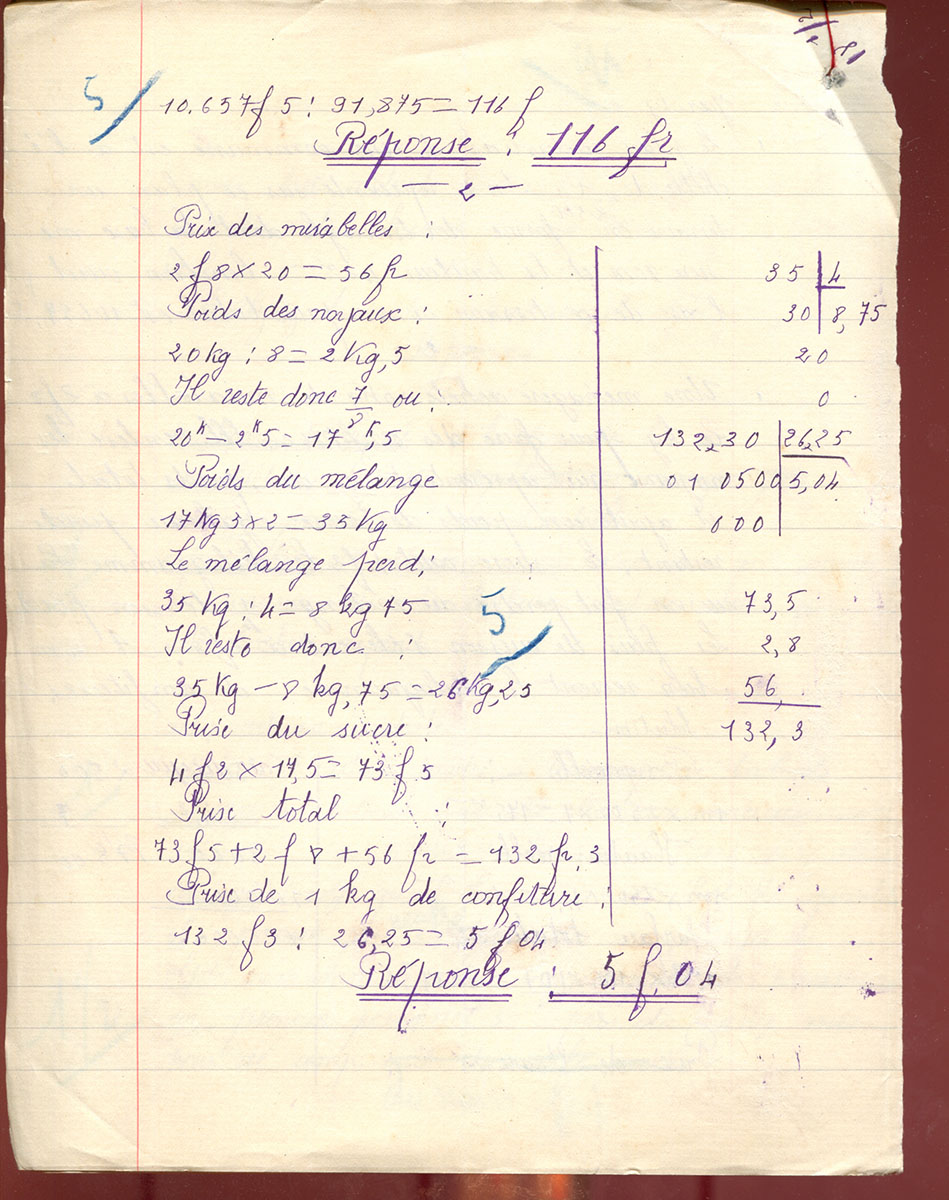 5/
10.657f5 : 91,875 = 116 f
Réponse : 116 fr
— 2 —
Prix des mirabelles :
2f8 × 20 = 56 fr
Poids des noyaux :
20kg : 8 = 2 Kg,5
Il reste donc 7/8 ou :
20k — 2k5 = 17k,5
Poids du mélange
17kg 5 × 2 = 35 Kg
Le mélange perd ;
35 Kg : 4 = 8 kg 75
Il reste donc :
35 Kg — 8 kg,75 = 26 kg,25
Prise du sucre :
4f2 × 17,5 = 73f5
Prise total :
73f5 + 2f8 + 56 fr = 132 fr,3
Prise de 1 kg de confiture :
132f3 : 26,25 = 5 f 04
Réponse : 5 f, 04
35 | 4
30 | 8,75
20
0
132,30 | 26,25
01 0500 | 5,04
000
73,5
2,8
56,
132,3
5/